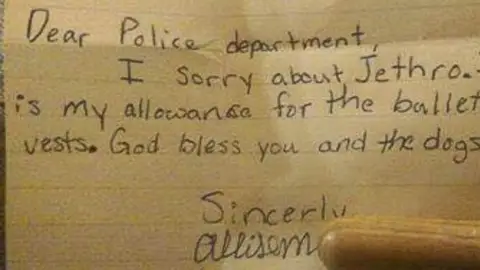 Dear Police department,
I sorry about Jethro.
is my allowanse for the bullet
vests. God bless you and the dogs
Sincerly